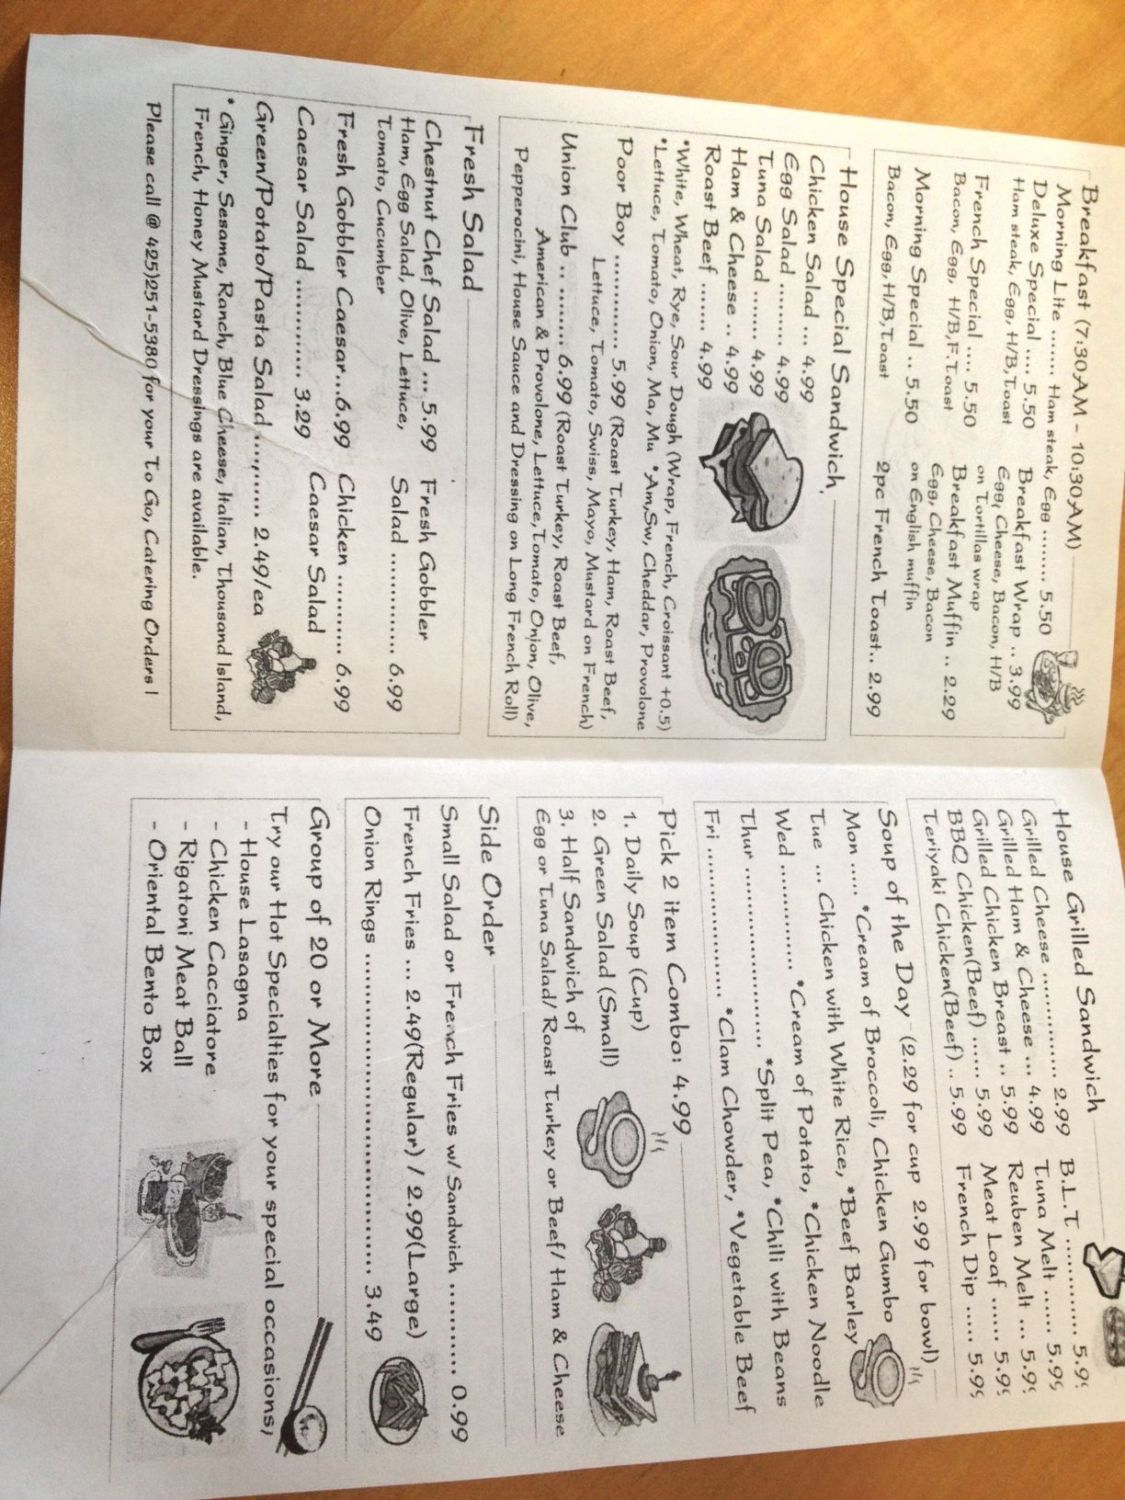 Breakfast (7:30AM - 10:30AM)
Morning Lite ....... Ham steak, Egg ........ 5.50
Deluxe Special .... 5.50
Ham steak, Egg, H/B,Toast
French Special .... 5.50
Bacon, Egg, H/B,F.Toast
Morning Special .. 5.50
Bacon, Egg,H/B,Toast
Breakfast Wrap .. 3.99
Egg, Cheese, Bacon, H/B
on Tortillas wrap
Breakfast Muffin .. 2.29
Egg, Cheese, Bacon
on English muffin
2pc French Toast.. 2.99
House Special Sandwich
Chicken Salad ... 4.99
Egg Salad ......... 4.99
Tuna Salad ....... 4.99
Ham & Cheese .. 4.99
Roast Beef ....... 4.99
*White, Wheat, Rye, Sour Dough (Wrap, French, Croissant +0.5)
*Lettuce, Tomato, Onion, Ma, Mu *Am,Sw, Cheddar, Provolone
Poor Boy ............ 5.99 (Roast Turkey, Ham, Roast Beef,
Lettuce, Tomato, Swiss, Mayo, Mustard on French)
Union Club .. ........ 6.99 (Roast Turkey, Roast Beef,
American & Provolone, Lettuce,Tomato, Onion, Olive,
Pepperocini, House Sauce and Dressing on Long French Roll)
Fresh Salad
Chestnut Chef Salad ... 5.99
Ham, Egg Salad, Olive, Lettuce,
Tomato, Cucumber
Fresh Gobbler
Salad ............. 6.99
Fresh Gobbler Caesar...6.99
Chicken .......... 6.99
Caesar Salad
Caesar Salad ............ 3.29
Green/Potato/Pasta Salad .......... 2.49/ea
* Ginger, Sesame, Ranch, Blue Cheese, Italian, Thousand Island,
French, Honey Mustard Dressings are available.
Please call @ 425)251-5380 for your To Go, Catering Orders !
House Grilled Sandwich
Grilled Cheese .............. 2.99
Grilled Ham & Cheese ... 4.99
Grilled Chicken Breast .. 5.99
BBQ Chicken(Beef) ...... 5.99
Teriyaki Chicken(Beef) .. 5.99
B.L.T ............. 5.9
Tuna Melt ....... 5.99
Reuben Melt ... 5.9
Meat Loaf ...... 5.9
French Dip ..... 5.99
Soup of the Day (2.29 for cup 2.99 for bowl)
Mon ..... *Cream of Broccoli, Chicken Gumbo
Tue ... Chicken with White Rice, *Beef Barley
Wed .............. *Cream of Potato, *Chicken Noodle
Thur ....................... *Split Pea, *Chili with Beans
Fri ................... *Clam Chowder, *Vegetable Beef
Pick 2 item Combo: 4.99
1. Daily Soup (Cup)
2. Green Salad (Small)
3. Half Sandwich of
Egg or Tuna Salad/ Roast Turkey or Beef/ Ham & Cheese
Side Order
Small Salad or French Fries w/ Sandwich ........... 0.99
French Fries ... 2.49(Regular) / 2.99(Large)
Onion Rings ................................. 3.49
Group of 20 or More
Try our Hot Specialties for your special occasions;
- House Lasagna
- Chicken Cacciatore
- Rigatoni Meat Ball
- Oriental Bento Box